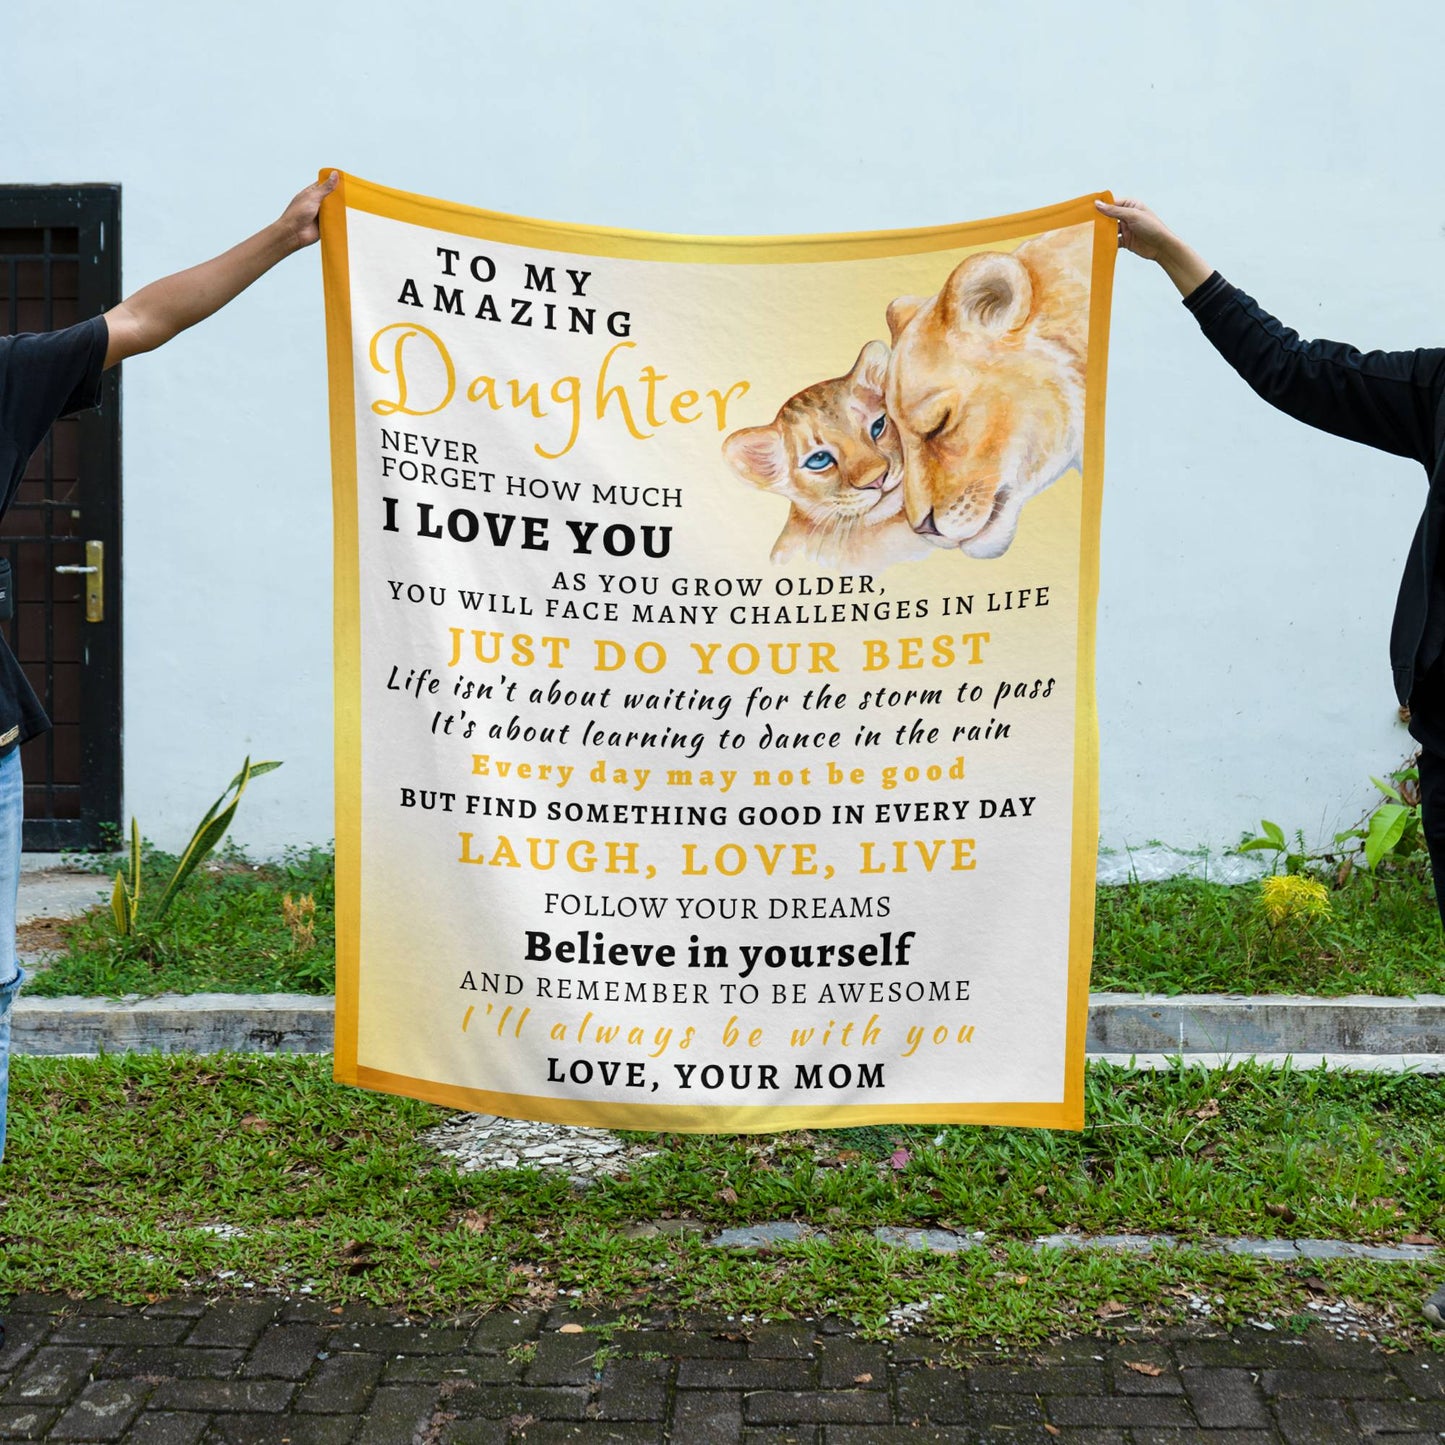 TO MY
AMAZING
Daughter
NEVER
FORGET HOW MUCH
I LOVE YOU
AS YOU GROW OLDER,
YOU WILL FACE MANY CHALLENGES IN LIFE
JUST DO YOUR BEST
Life isn't about waiting for the storm to pass
It's about learning to dance in the rain
Every day may not be good
BUT FIND SOMETHING GOOD IN EVERY DAY
LAUGH, LOVE, LIVE
FOLLOW YOUR DREAMS
Believe in yourself
AND REMEMBER TO BE AWESOME
I'll always be with you
LOVE, YOUR MOM